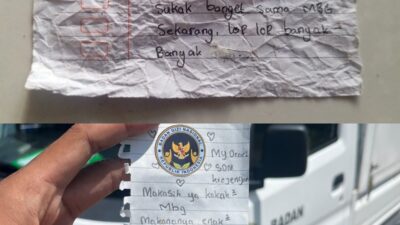 Sukak banget sama MBG
Sekarang, lop lop banyak-
Banyak
BADAN GIZI NASIONAL
REPUBLIK INDONESIA
My Oreo
SDN
Makasih ya kakak²
Mbg
Makananya enak²
BADAN